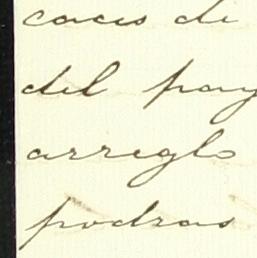 cacis di
del pay
arreglo
podras